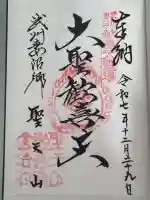 奉納
令和七年十二月二十九日
大聖歓喜天
武州妻沼郷
聖天山